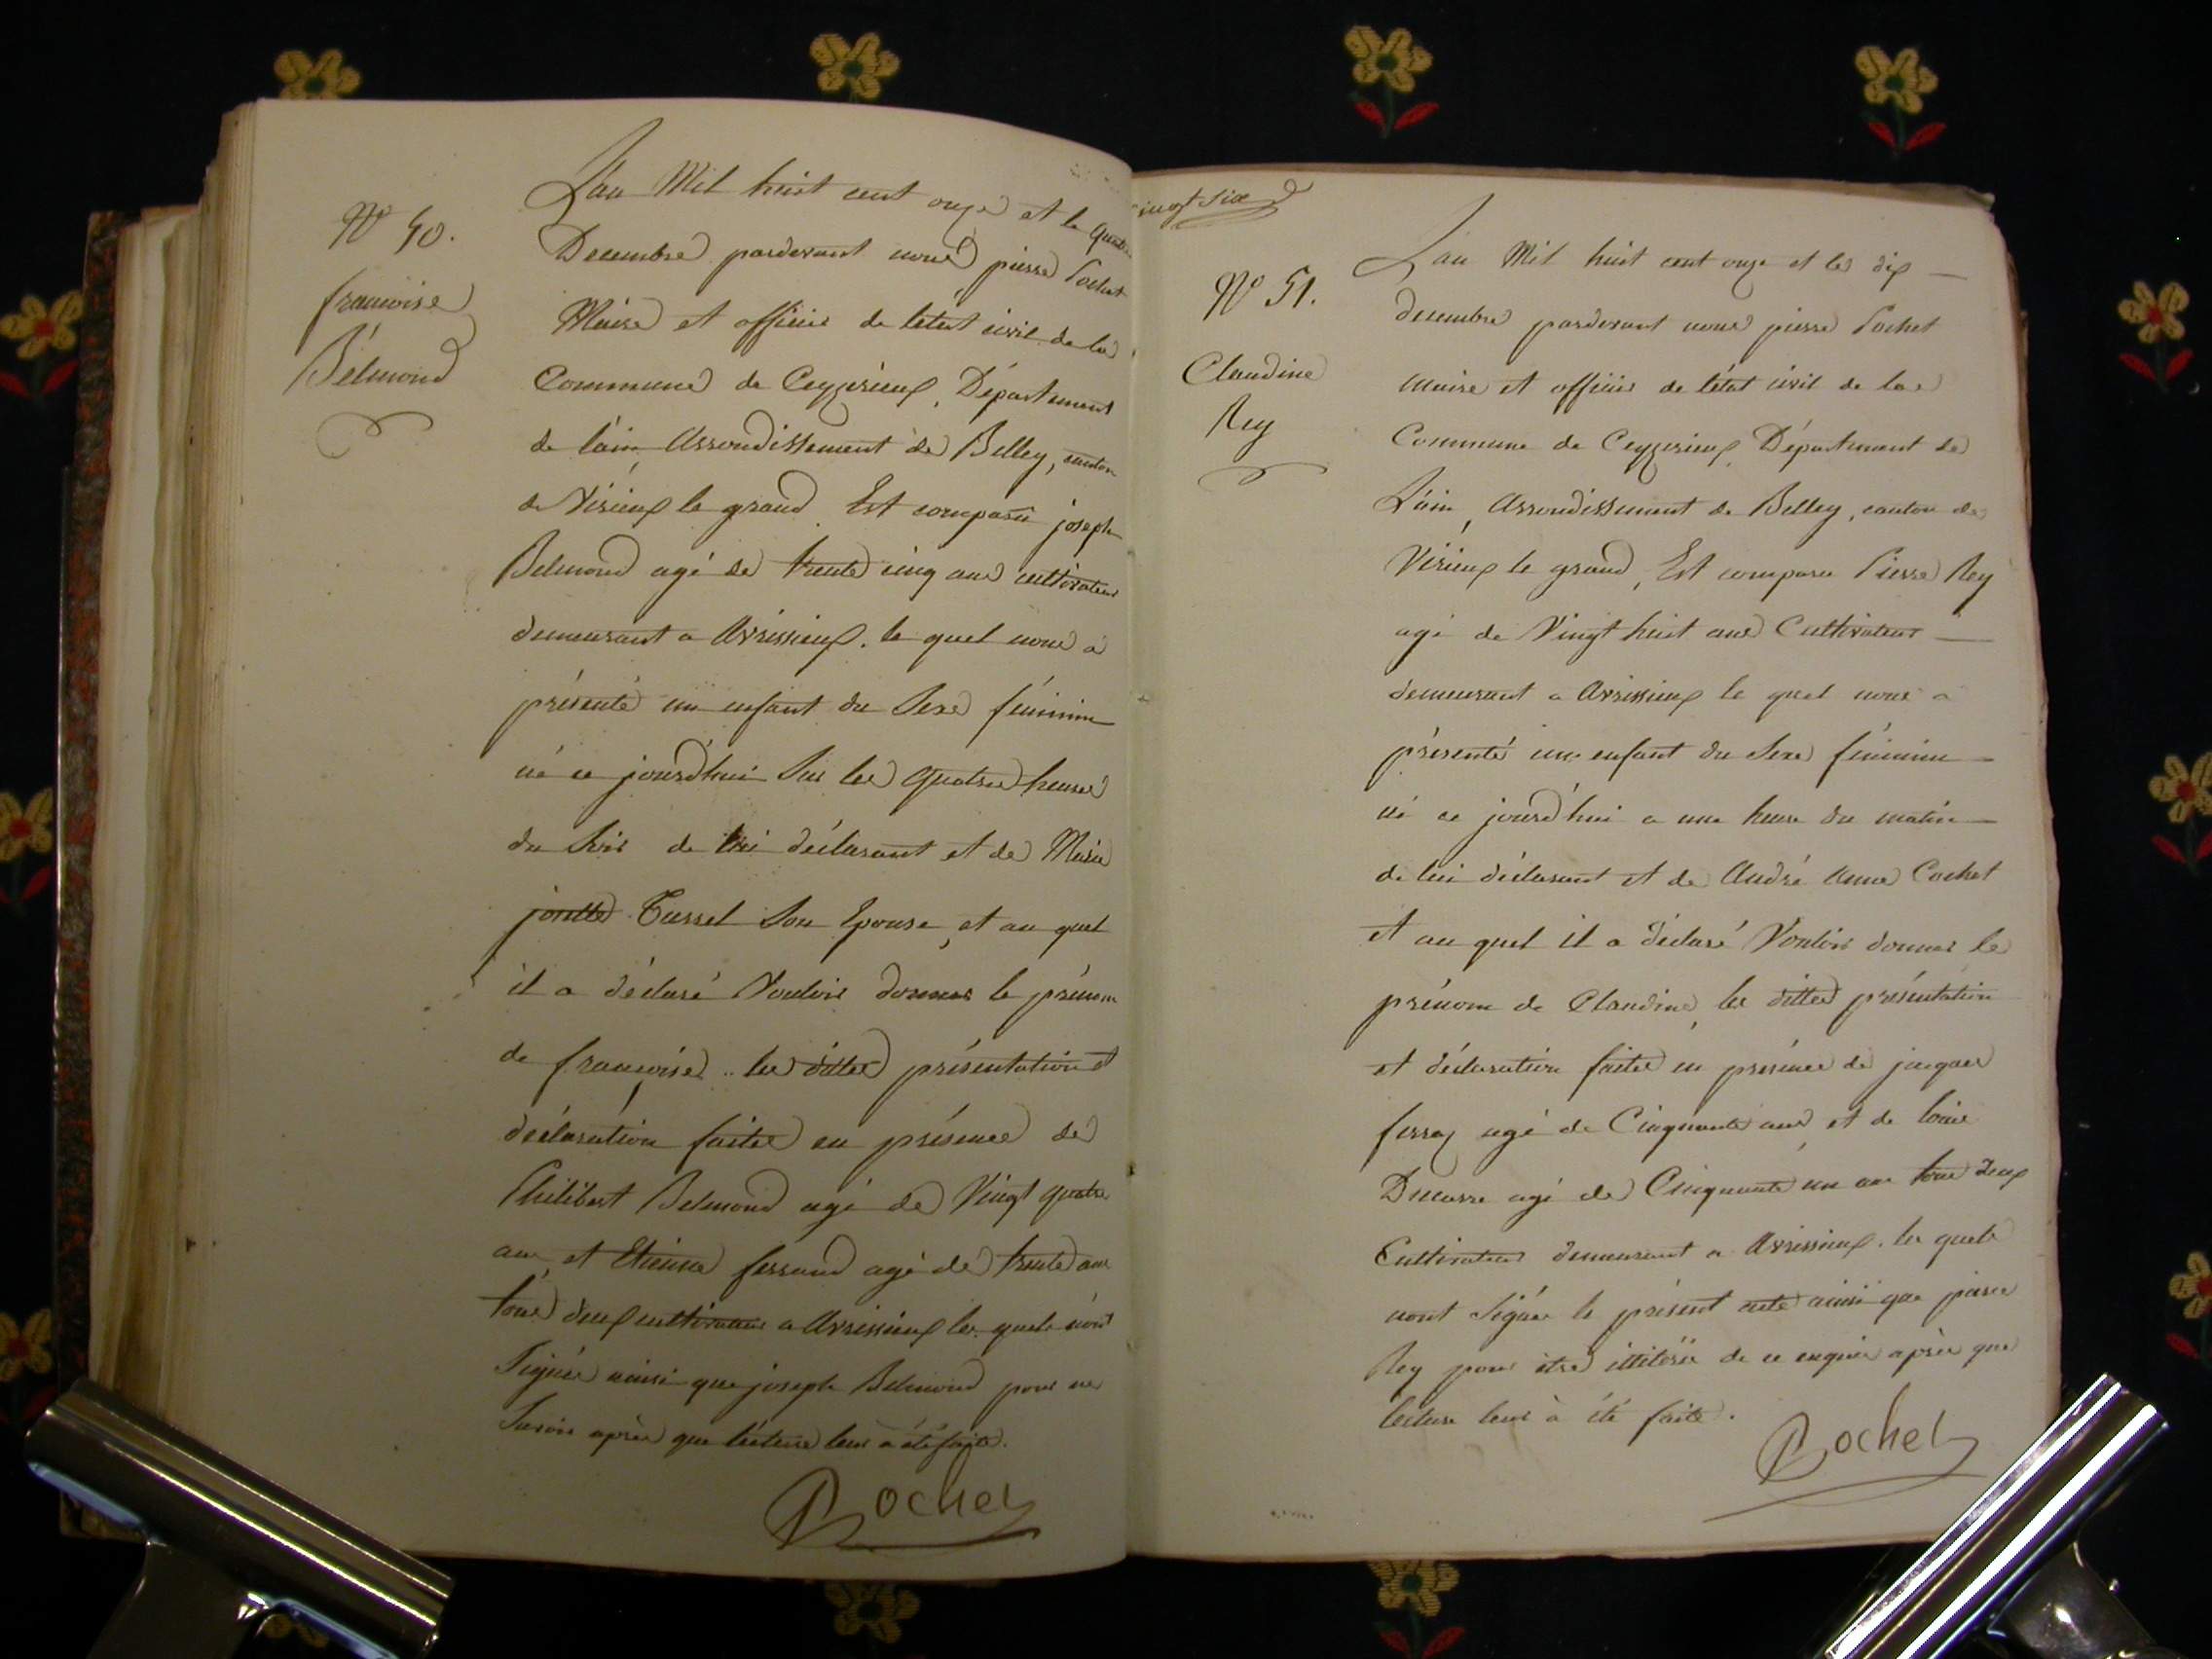 N° 50.
francoise
Bélmond
L'an Mil huit cent onze et le quatre
Decembre pardevant nous pierre Pochet
Maire et officier de létat civil de la
Commune de Ceyzerieux, Département
de l'ain Arrondissement de Belley, canton
de Virieux le grand. Est comparu joseph
Belmond agé de trente cinq ans cultivateur
demeurant a Avrissieux. le quel nous a
présenté un enfant du Sexe féminin
né ce jourd'hui Sur les quatre heures
du Soir de lui déclarant et de Marie
Tussel Son Epouse, et au quel
il a déclaré Vouloir donner le prénom
de francoise. les dittes présentation et
déclaration faites en présence de
Philibert Belmond agé de Vingt quatre
ans, et Etienne ferrand agé de trente ans
tous deux cultivateurs a Avrissieux les quels n'ont
Signés ainsi que joseph Belmond pour ne
Savoir après que lécture leur à été faite.
Pochet
vingt Six
N° 51.
Claudine
Rey
L'an Mil huit cent onze et les dix
decembre pardevant nous pierre Pochet
Maire et officier de l'état civil de la
Commune de Ceyzerieux, Département de
L'ain, Arrondissement de Belley, canton de
Virieux le grand, Est comparu Pierre Rey
agé de Vingt huit ans Cultivateur
demeurant a Avrissieux le quel nous a
présenté un enfant du Sexe féminin
né ce jourd'hui a une heure du matin
de lui déclarant et de André Anne Cochet
et au quel il a déclaré Vouloir donner le
prénom de Claudine, les dittes présentation
et déclaration faites en présence de jacques
ferraz agé de Cinquante ans, et de loüis
Ducarre agé de Cinquante un ans tous deux
Cultivateurs demeurant a Avrissieux. les quels
n'ont Signés le présent acte ainsi que pierre
Rey pour être illiterés de ce enquis après que
lecture leur à été faite.
Pochet